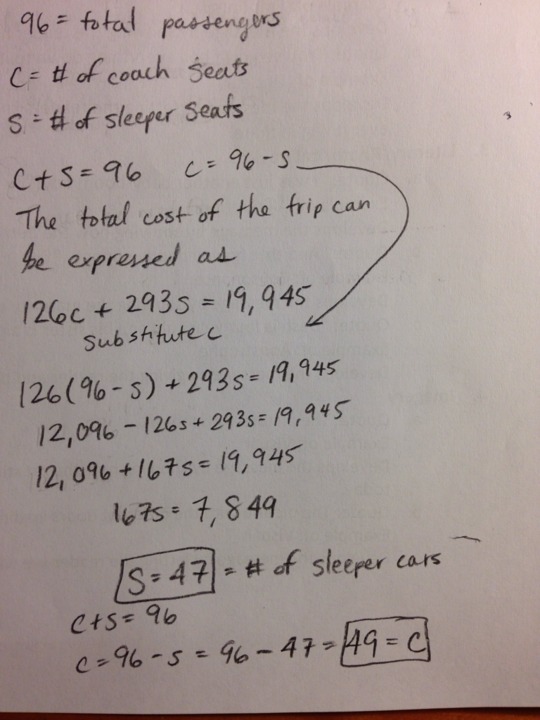 96 = total passengers
C = # of coach seats
S = # of sleeper seats
C + S = 96 C = 96 - S
The total cost of the trip can
be expressed as
126c + 293s = 19,945
substitute c
126(96 - s) + 293s = 19,945
12,096 - 126s + 293s = 19,945
12,096 + 167s = 19,945
167s = 7,849
S = 47 = # of sleeper cars
C + S = 96
C = 96 - S = 96 - 47 = 49 = C